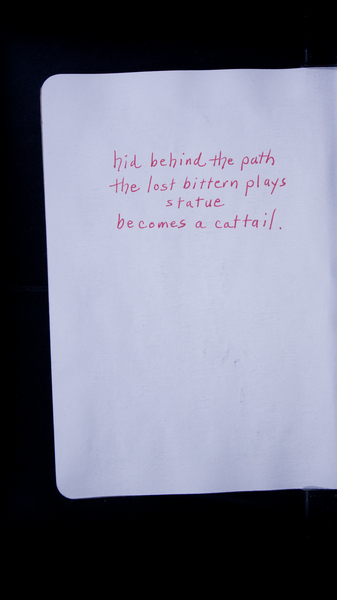 hid behind the path
the lost bittern plays
statue
becomes a cattail.